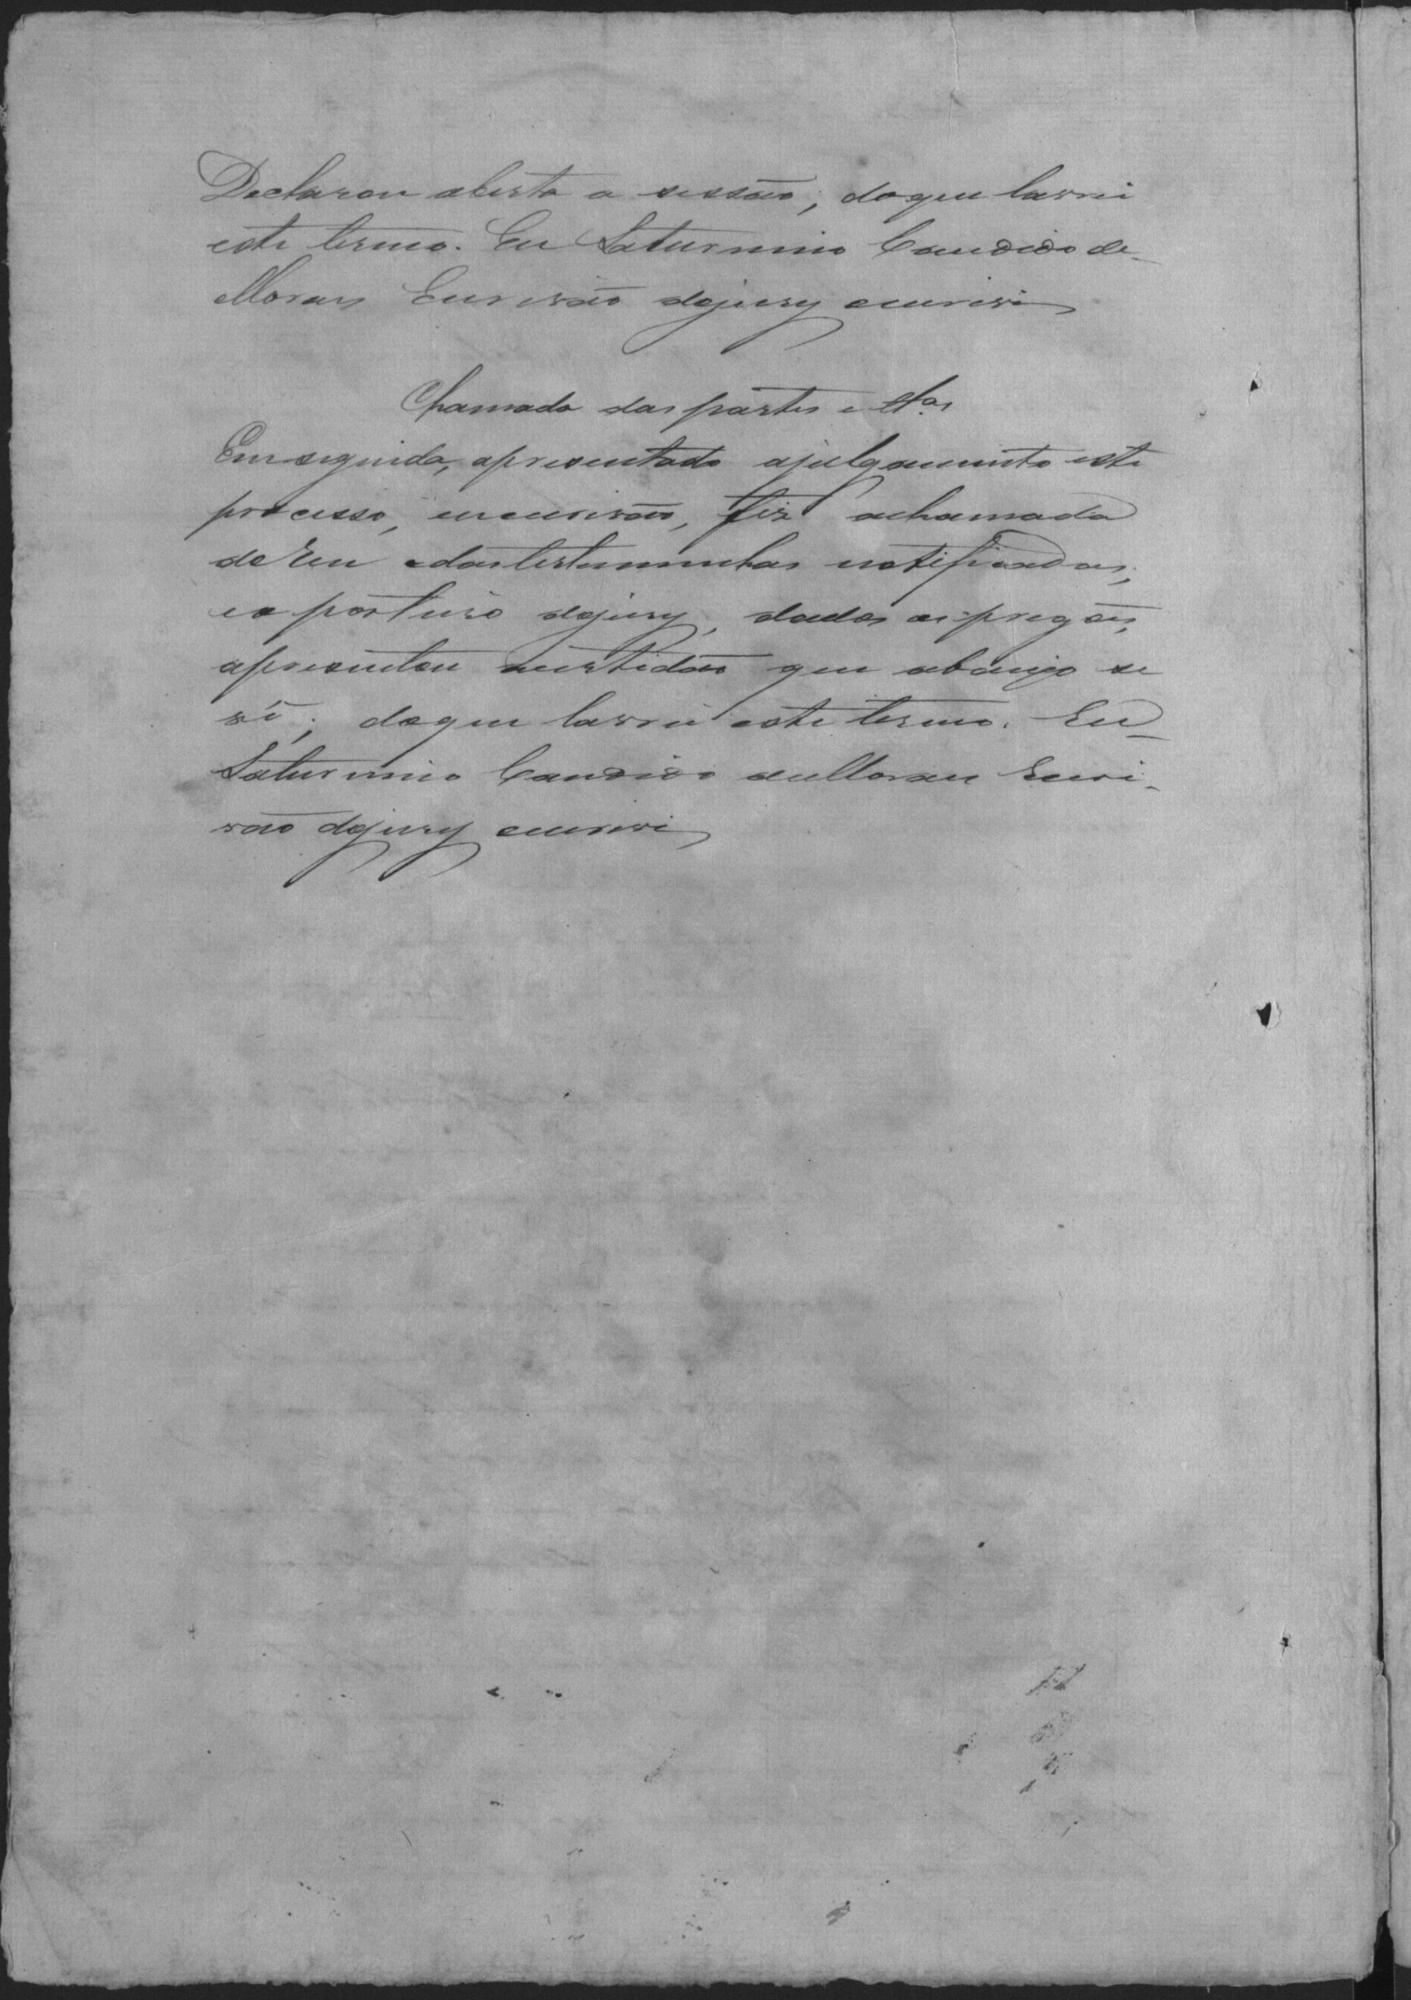 Declarou aberta a sessão; do que lavrei
este termo. Eu Saturnino Candido de
Moraes Escrivão do jury escrevi
Chamada das partes e Ttas
Em seguida, apresentado a julgamento este
processo, eu escrivão, fiz a chamada
do reu e das testemunhas notificadas,
e o porteiro do jury, dados os pregões,
apresentou a certidão que abaixo se
vê; do que lavrei este termo. Eu
Saturnino Candido de Moraes Escri-
vão do jury escrevi